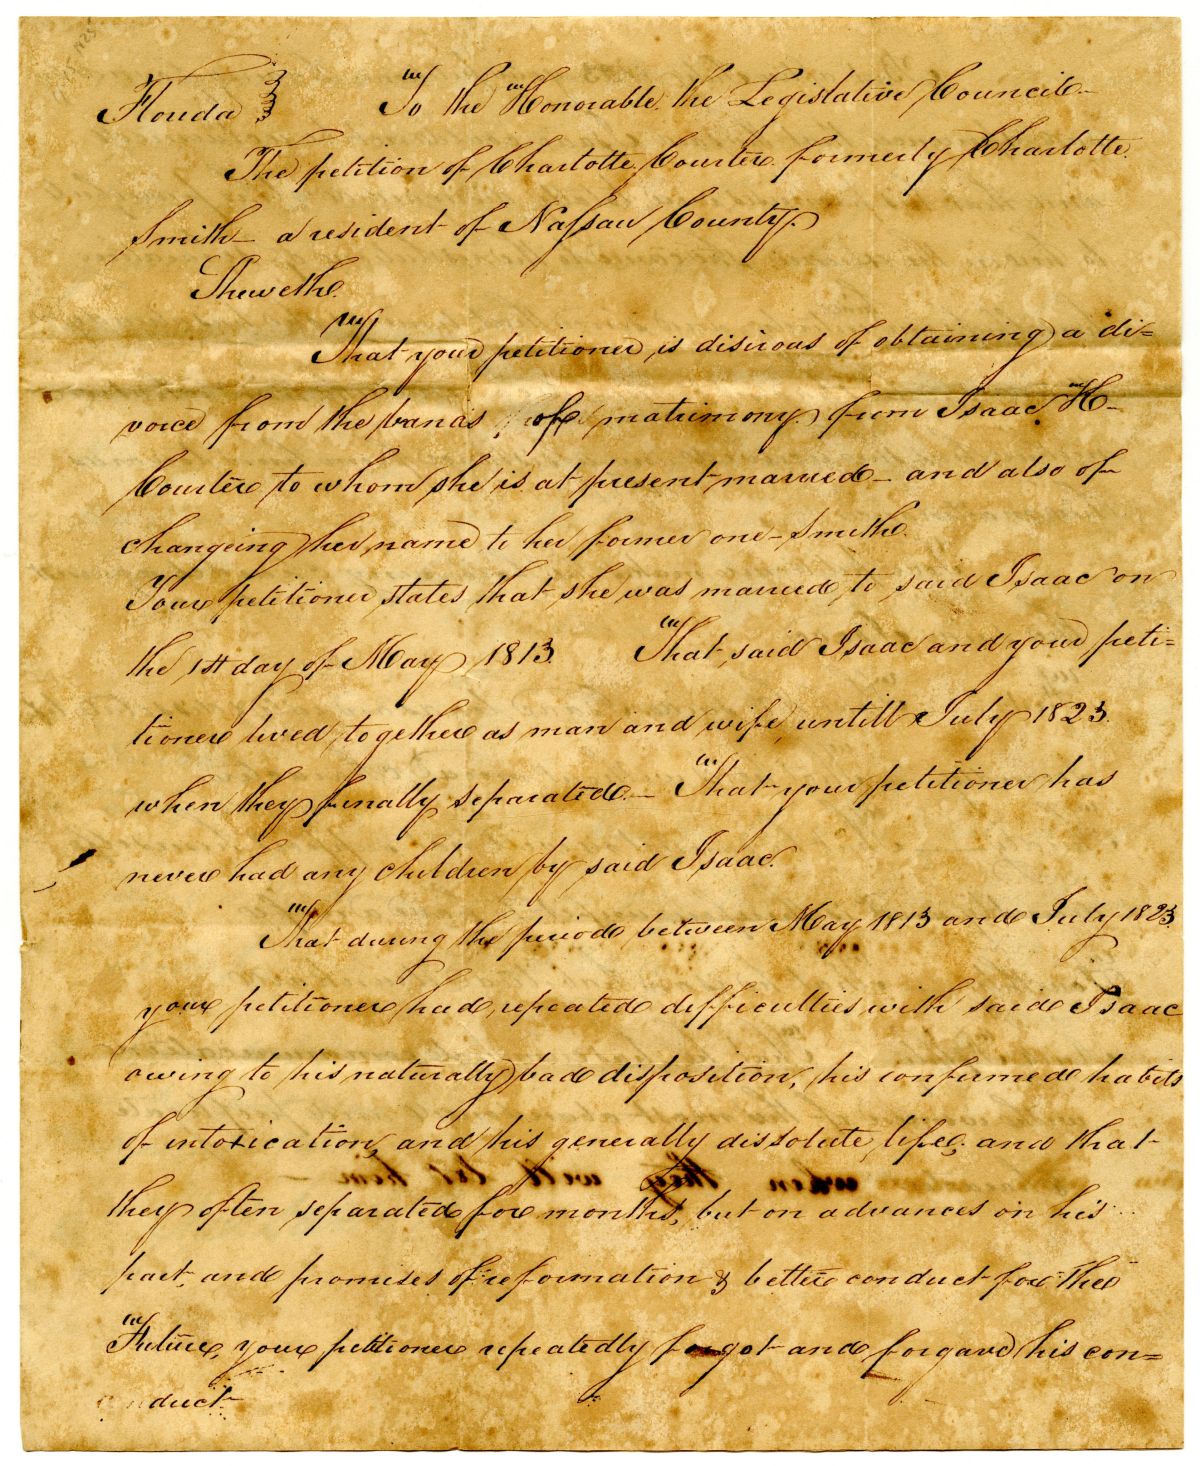 Florida } To the Honorable the Legislative Council-
The petition of Charlotte Courter formerly Charlotte
Smith - a resident of Nassau County.
Sheweth.
That your petitioner is disirous of obtaining a di=
vorce from the bands of matrimony from Isaac H-
Courter to whom she is at present married - and also of
changeing her name to her former one - Smith.
Your petitioner states that she was married to said Isaac on
the 1st day of May 1813. That said Isaac and your peti=
tioner lived together as man and wife untill July 1823.
when they finally separated. - That your petitioner has
never had any children by said Isaac.
That during the period between May 1813 and July 1823
your petitioner had repeated difficulties with said Isaac
owing to his naturally bad disposition, his confirmed habits
of intoxication, and his generally dissolute life; and that-
they often separated for months, but on advances on his
part, and promises of reformation & better conduct for the
Future, your petitioner repeatedly forgot and forgave his con=
nduct-